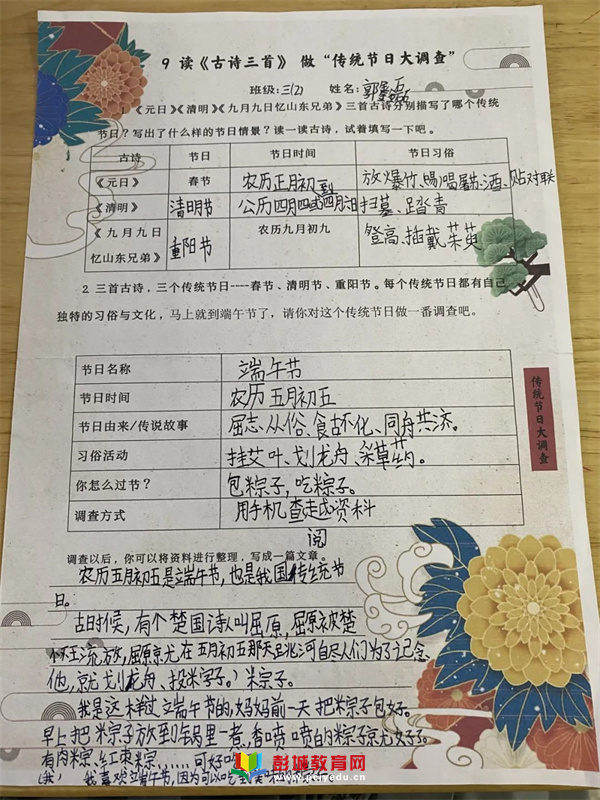 9 读《古诗三首》 做“传统节日大调查”
班级:三(2) 姓名:
1.《元日》《清明》《九月九日忆山东兄弟》三首古诗分别描写了哪个传统
节日?写出了什么样的节日情景?读一读古诗,试着填写一下吧。
古诗 节日 节日时间 节日习俗
《元日》 春节 农历正月初一 放爆竹、喝屠苏酒、贴对联
《清明》 清明节 公历四月四或四月五日 扫墓、踏青
《九月九日
忆山东兄弟》 重阳节 农历九月初九 登高、插戴茱萸
2. 三首古诗,三个传统节日----春节、清明节、重阳节。每个传统节日都有自己
独特的习俗与文化,马上就到端午节了,请你对这个传统节日做一番调查吧。
节日名称 端午节
节日时间 农历五月初五
节日由来/传说故事 屈志、从俗、同舟共济。
习俗活动 挂艾叶、划龙舟、采草药。
你怎么过节? 包粽子,吃粽子。
调查方式 用手机查阅资料
传统节日大调查
调查以后,你可以将资料进行整理,写成一篇文章。
农历五月初五是端午节,也是我国传统节
日。
古时候,有个楚国诗人叫屈原,屈原被楚
怀王流放,屈原就在五月初五那天自尽人们为了记念
他,就划龙舟、投米宗子。
我是这样过端午节的,妈妈前一天把米宗子包好。
早上把米宗子放到锅里一煮,香喷喷的米宗子
有肉米宗、红枣米宗......可好吃
我喜欢端午节,因为可以吃到
彭城教育网
www.pcjyedu.cn